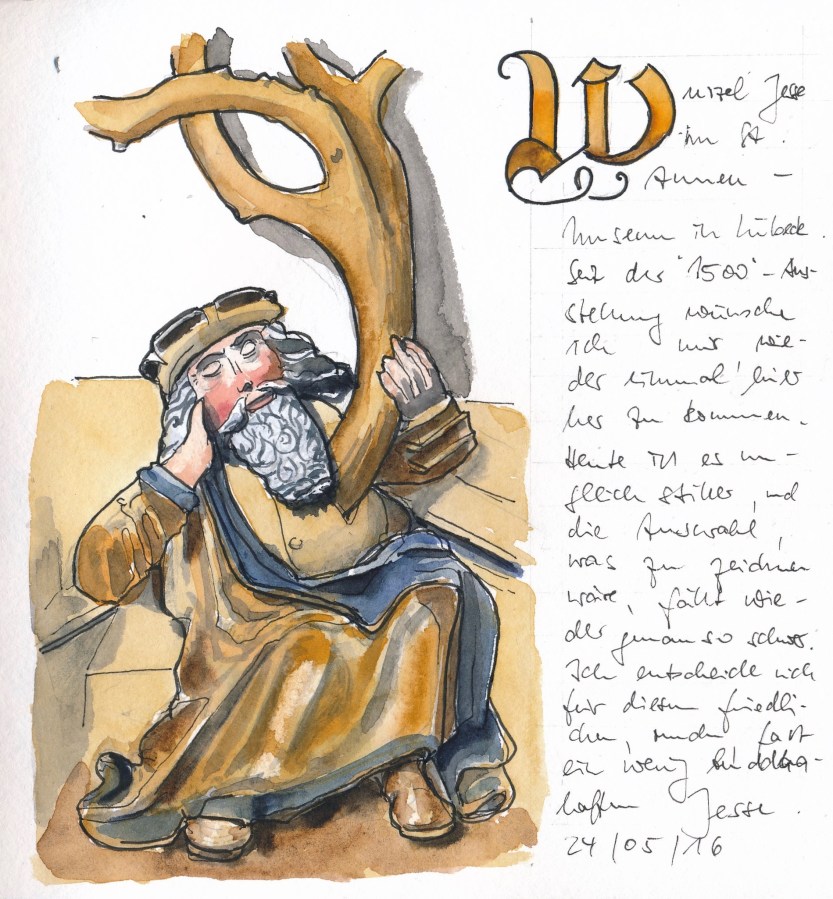 Wurzel Jesse
im St.
Annen-
Museum in Lübeck.
Seit der "1500"-Aus-
stellung wünsche
ich mir wie-
der einmal hier
her zu kommen.
Heute ist es un-
gleich stiller, und
die Auswahl,
was zu zeichnen
wäre, fällt wie-
der genauso schwer.
Ich entscheide mich
für diesen friedli-
chen, runden, fast
ein wenig buddha-
haften Jesse.
24/05/16